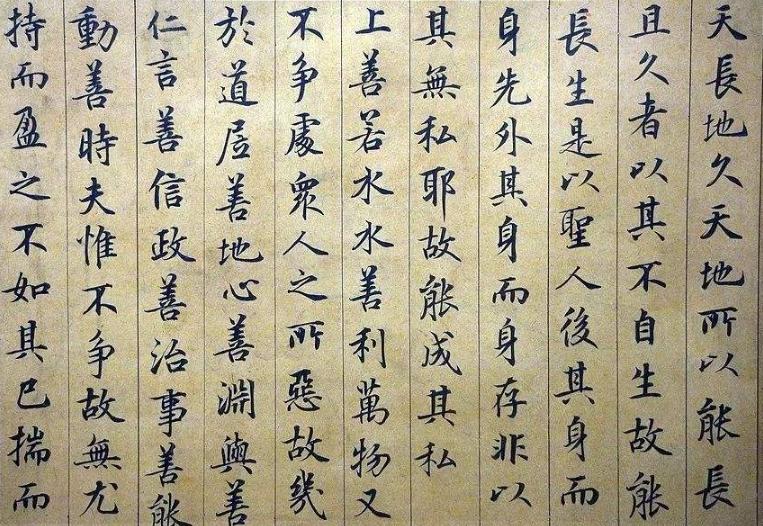 天長地久天地所以能長
且久者以其不自生故能
長生是以聖人後其身而
身先外其身而身存非以
其無私耶故能成其私
上善若水水善利萬物又
不争處衆人之所惡故幾
於道居善地心善淵與善
仁言善信政善治事善能
動善時夫惟不争故無尤
持而盈之不如其已揣而